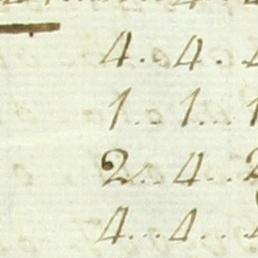 4..4.
1..1...
2..4..2
4...4...